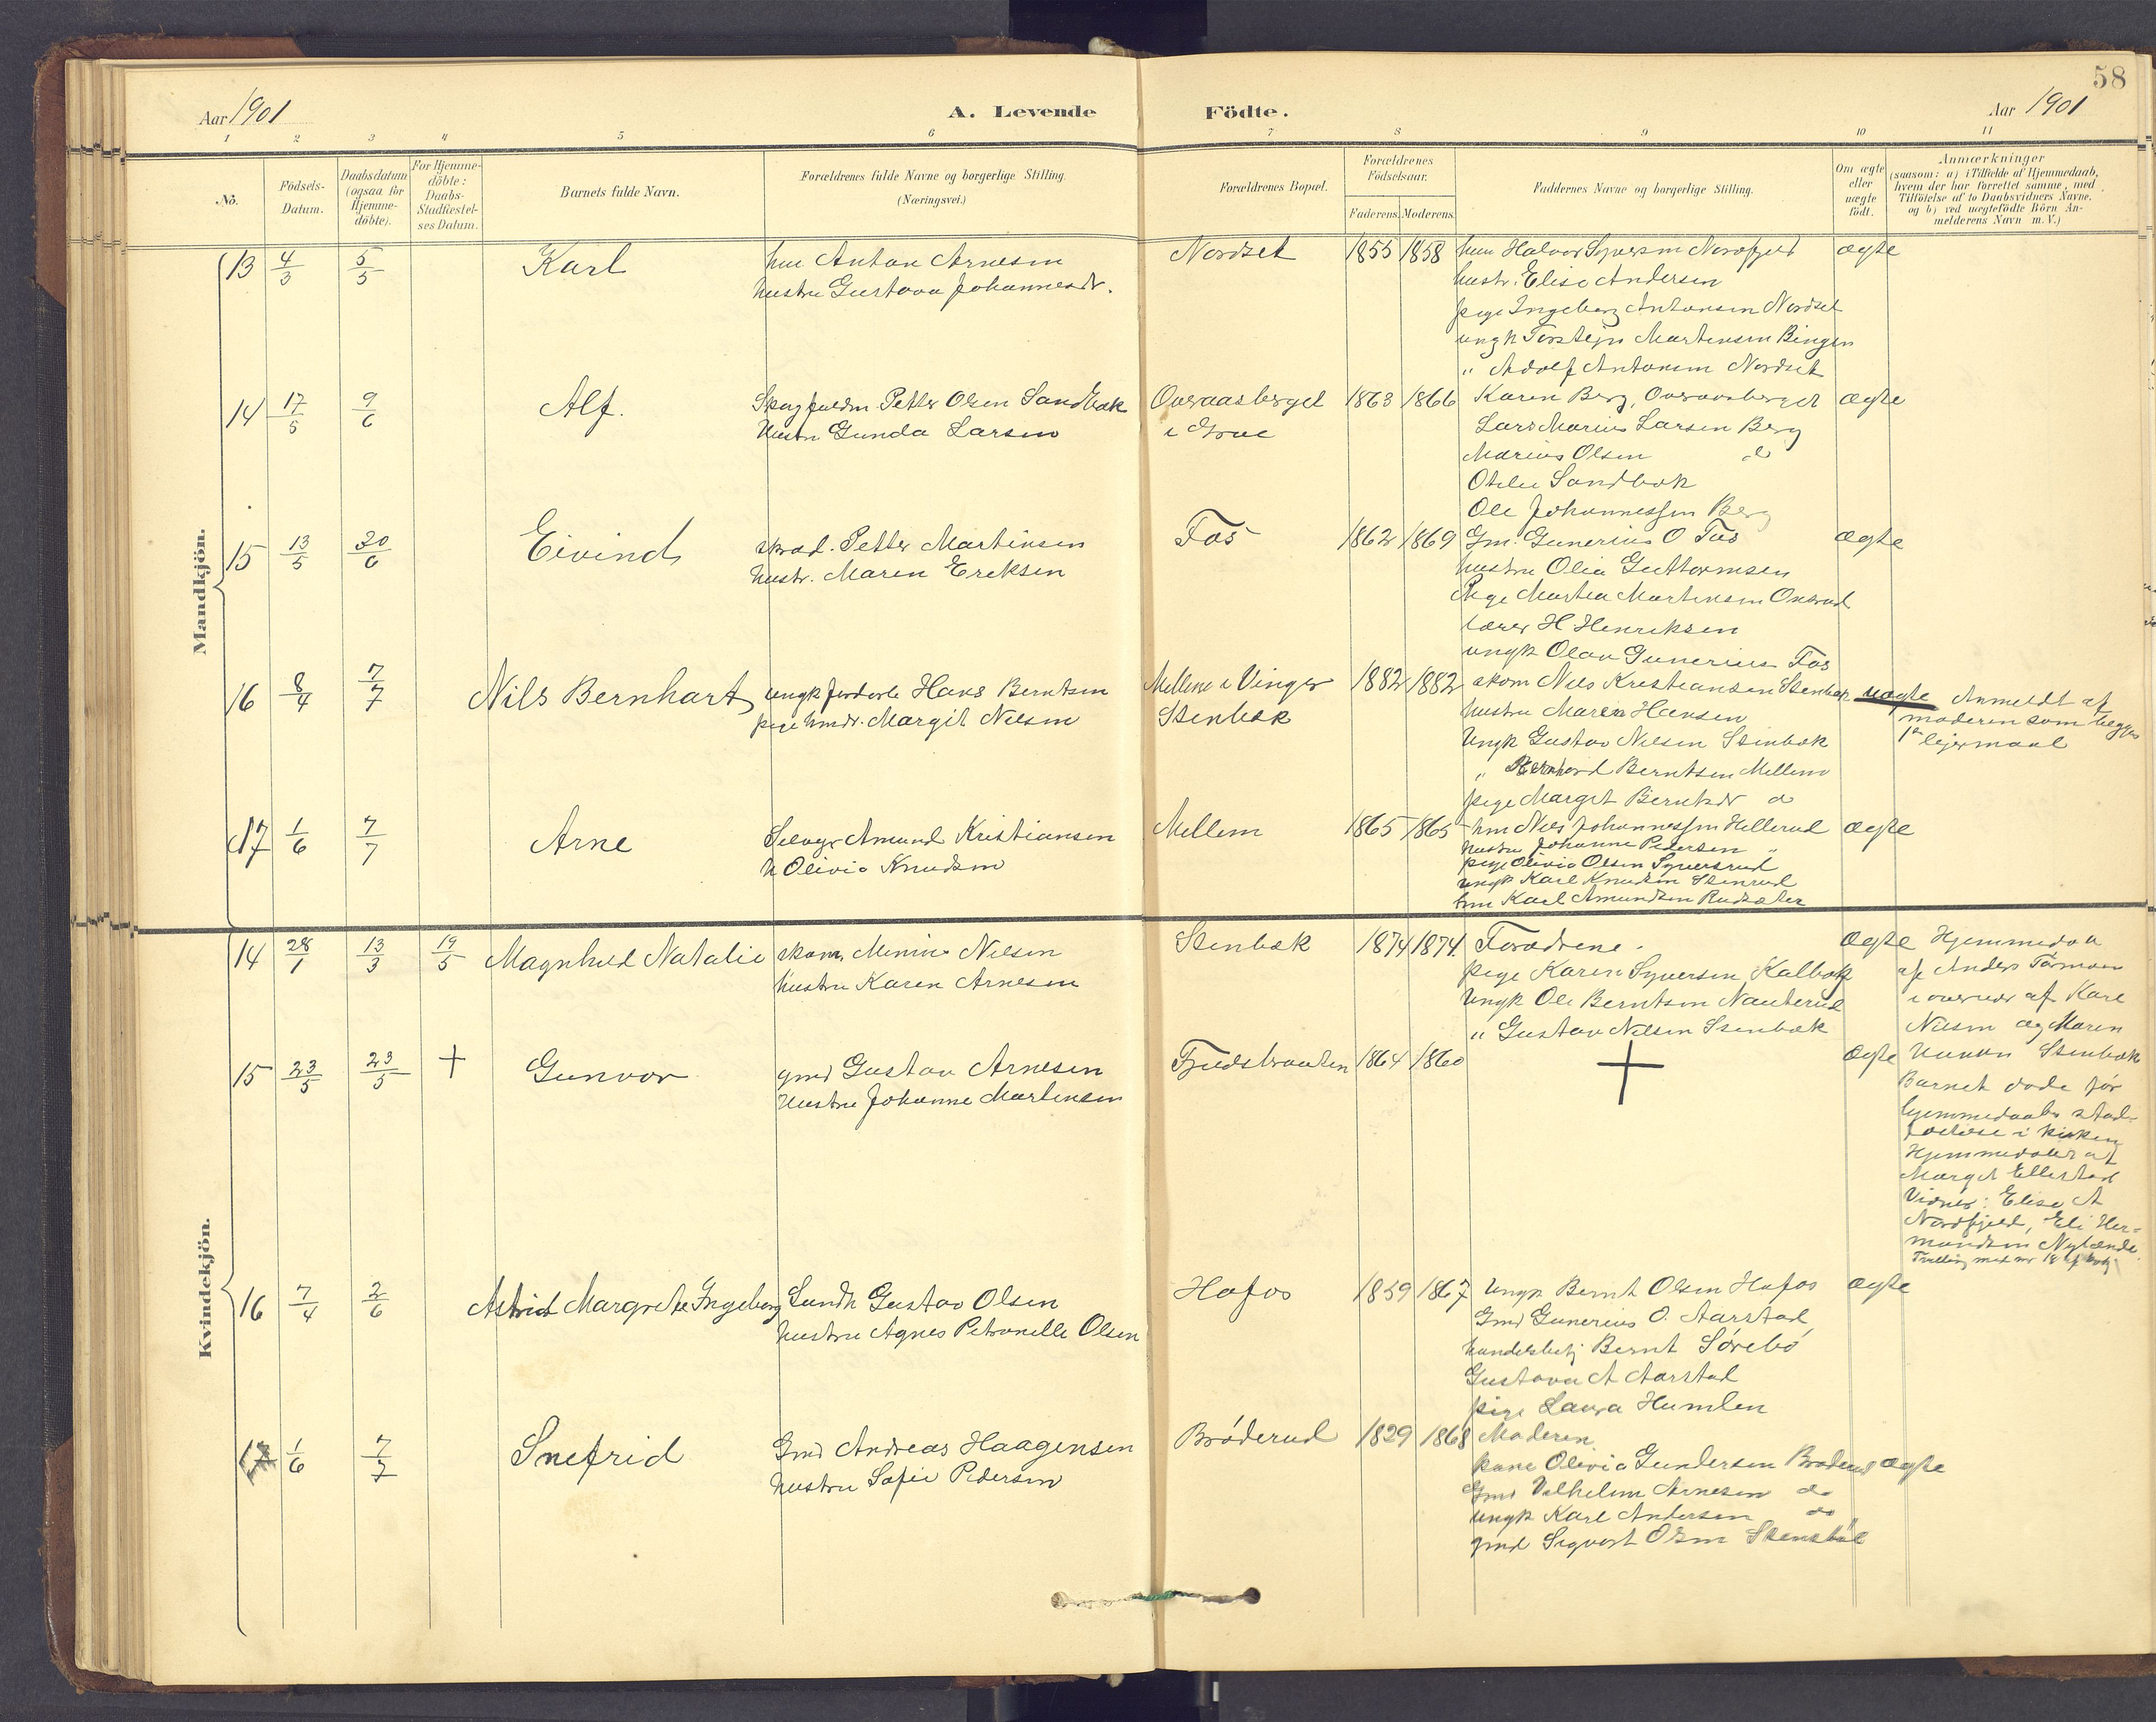 58
Aar 1901
A. Levende Födte.
Aar 1901
1 2 3 4 5 6 7 8 9 10 11
No.
Födsels-Datum.
Daabsdatum (ogsaa for Hjemme-döbte).
For Hjemme-döbte: Daabs-Stadfæstel-ses Datum.
Barnets fulde Navn.
Forældrenes fulde Navne og borgerlige Stilling.
(Næringsvei.)
Forældrenes Bopæl.
Forældrenes Födselsaar.
Faderens. Moderens.
Faddernes Navne og borgerlige Stilling.
Om ægte eller uægte födt.
Anmærkninger
(saasom: a) i Tilfælde af Hjemmedaab,
hvem der har forrettet samme, med
Tilföielse af to Daabsvidners Navne,
og b) ved uægtefödte Börn An-
melderens Navn m. V.)
Mandkjön.
13 4/3 5/5 Karl
hm Anton Arnesen
hustru Gustava Johannesdr.
Nordset 1855 1858
hm Halvor Syversen Nordfjeld
hustr. Elise Andersen
pige Ingeborg Antonsen Nordset
ungk Torstejn Martinsen Bingen
" Adolf Antonsen Nordset
ægte
14 17/5 9/6 Alf.
Petter Olsen Sandbæk
Hustru Gunda Larsen
Overaasberget
i Grue
1863 1866
Karen Berg, Overaasberget
Lars Marius Larsen Berg
Marius Olsen do
Otilie Sandbæk
Ole Johannessen Berg
ægte
15 13/5 30/6 Eivind
skræd. Petter Martinsen
hustr. Maren Eriksen
Fos 1862 1869
Gm. Gunerius O Fos
hustru Olia Guttormsen
Pige Martea Martinsen
lærer H. Henriksen
ungk Olav Gunerius Fos
ægte
16 8/4 7/7 Nils Bernhart
ungk Hans Berntsen
pige hmdr. Margit Nilsen
Mellem i Vinger
Stenbæk
1882 1882
skom Nils Kristiansen Stenbæk
hustru Maren Hansen
Ungk Gustav Nilsen Stenbæk
" Bernhard Berntsen Mellem
pige Margit Berntsdr do
uægte
Anmeldt af
moderen som begges
1ste lejermaal
17 1/6 7/7 Arne
Selvejer Amund Kristiansen
h Olivia Knudsen
Mellem 1865 1865
hm Nils Johannessen Hellerud
hustru Johanne Pedersen "
pige Olivia Olsen Syversrud
ungk Karl Knudsen Stenrud
hm Karl Amundsen Rudsæter
ægte
Kvindekjön.
14 28/1 13/3 19/5 Magnhild Natalie
skom. Minius Nilsen
hustru Karen Arnesen
Stenbæk 1874 1874
Forældrene.
pige Karen Syversen Kalbæk
Ungk Ole Berntsen Nauterud
" Gustav Nilsen Stenbæk
ægte
Hjemmedøbt
af Anders
i overvær af Karl
Nilsen og Maren
Stenbæk
15 23/5 23/5 + Gunvor
gmd Gustav Arnesen
Hustru Johanne Martinsen
Fjeldbraaten 1864 1860
+
ægte
Barnet døde før
hjemmedaabs stad-
fæstelse i kirken
Hjemmedøbt af
Margit Ellestad
Vidner: Elise A
Nordfjeld, Eli Her-
mundsen Nylænde.
Tvilling med nr 18
16 7/4 2/6 Astrid Margrethe Ingeborg
Landh Gustav Olsen
hustru Agnes Petronelle Olsen
Hofos 1859 1867
Ungk Bernt Olsen Hofos
Gmd Gunerius O. Aarstad
handelsbetj Bernt Sørebø
Gustava A Aarstad
pige Laura Humlen
ægte
17 1/6 7/7 Snefrid
Gmd Andreas Haagensen
hustru Sofie Pedersen
Brøderud 1829 1868
Moderen
kone Olivia Gundersen Brøderud
Gmd Vilhelm Arnesen do
ungk Karl Andersen do
gmd Sigvart Olsen Stensbøl
ægte